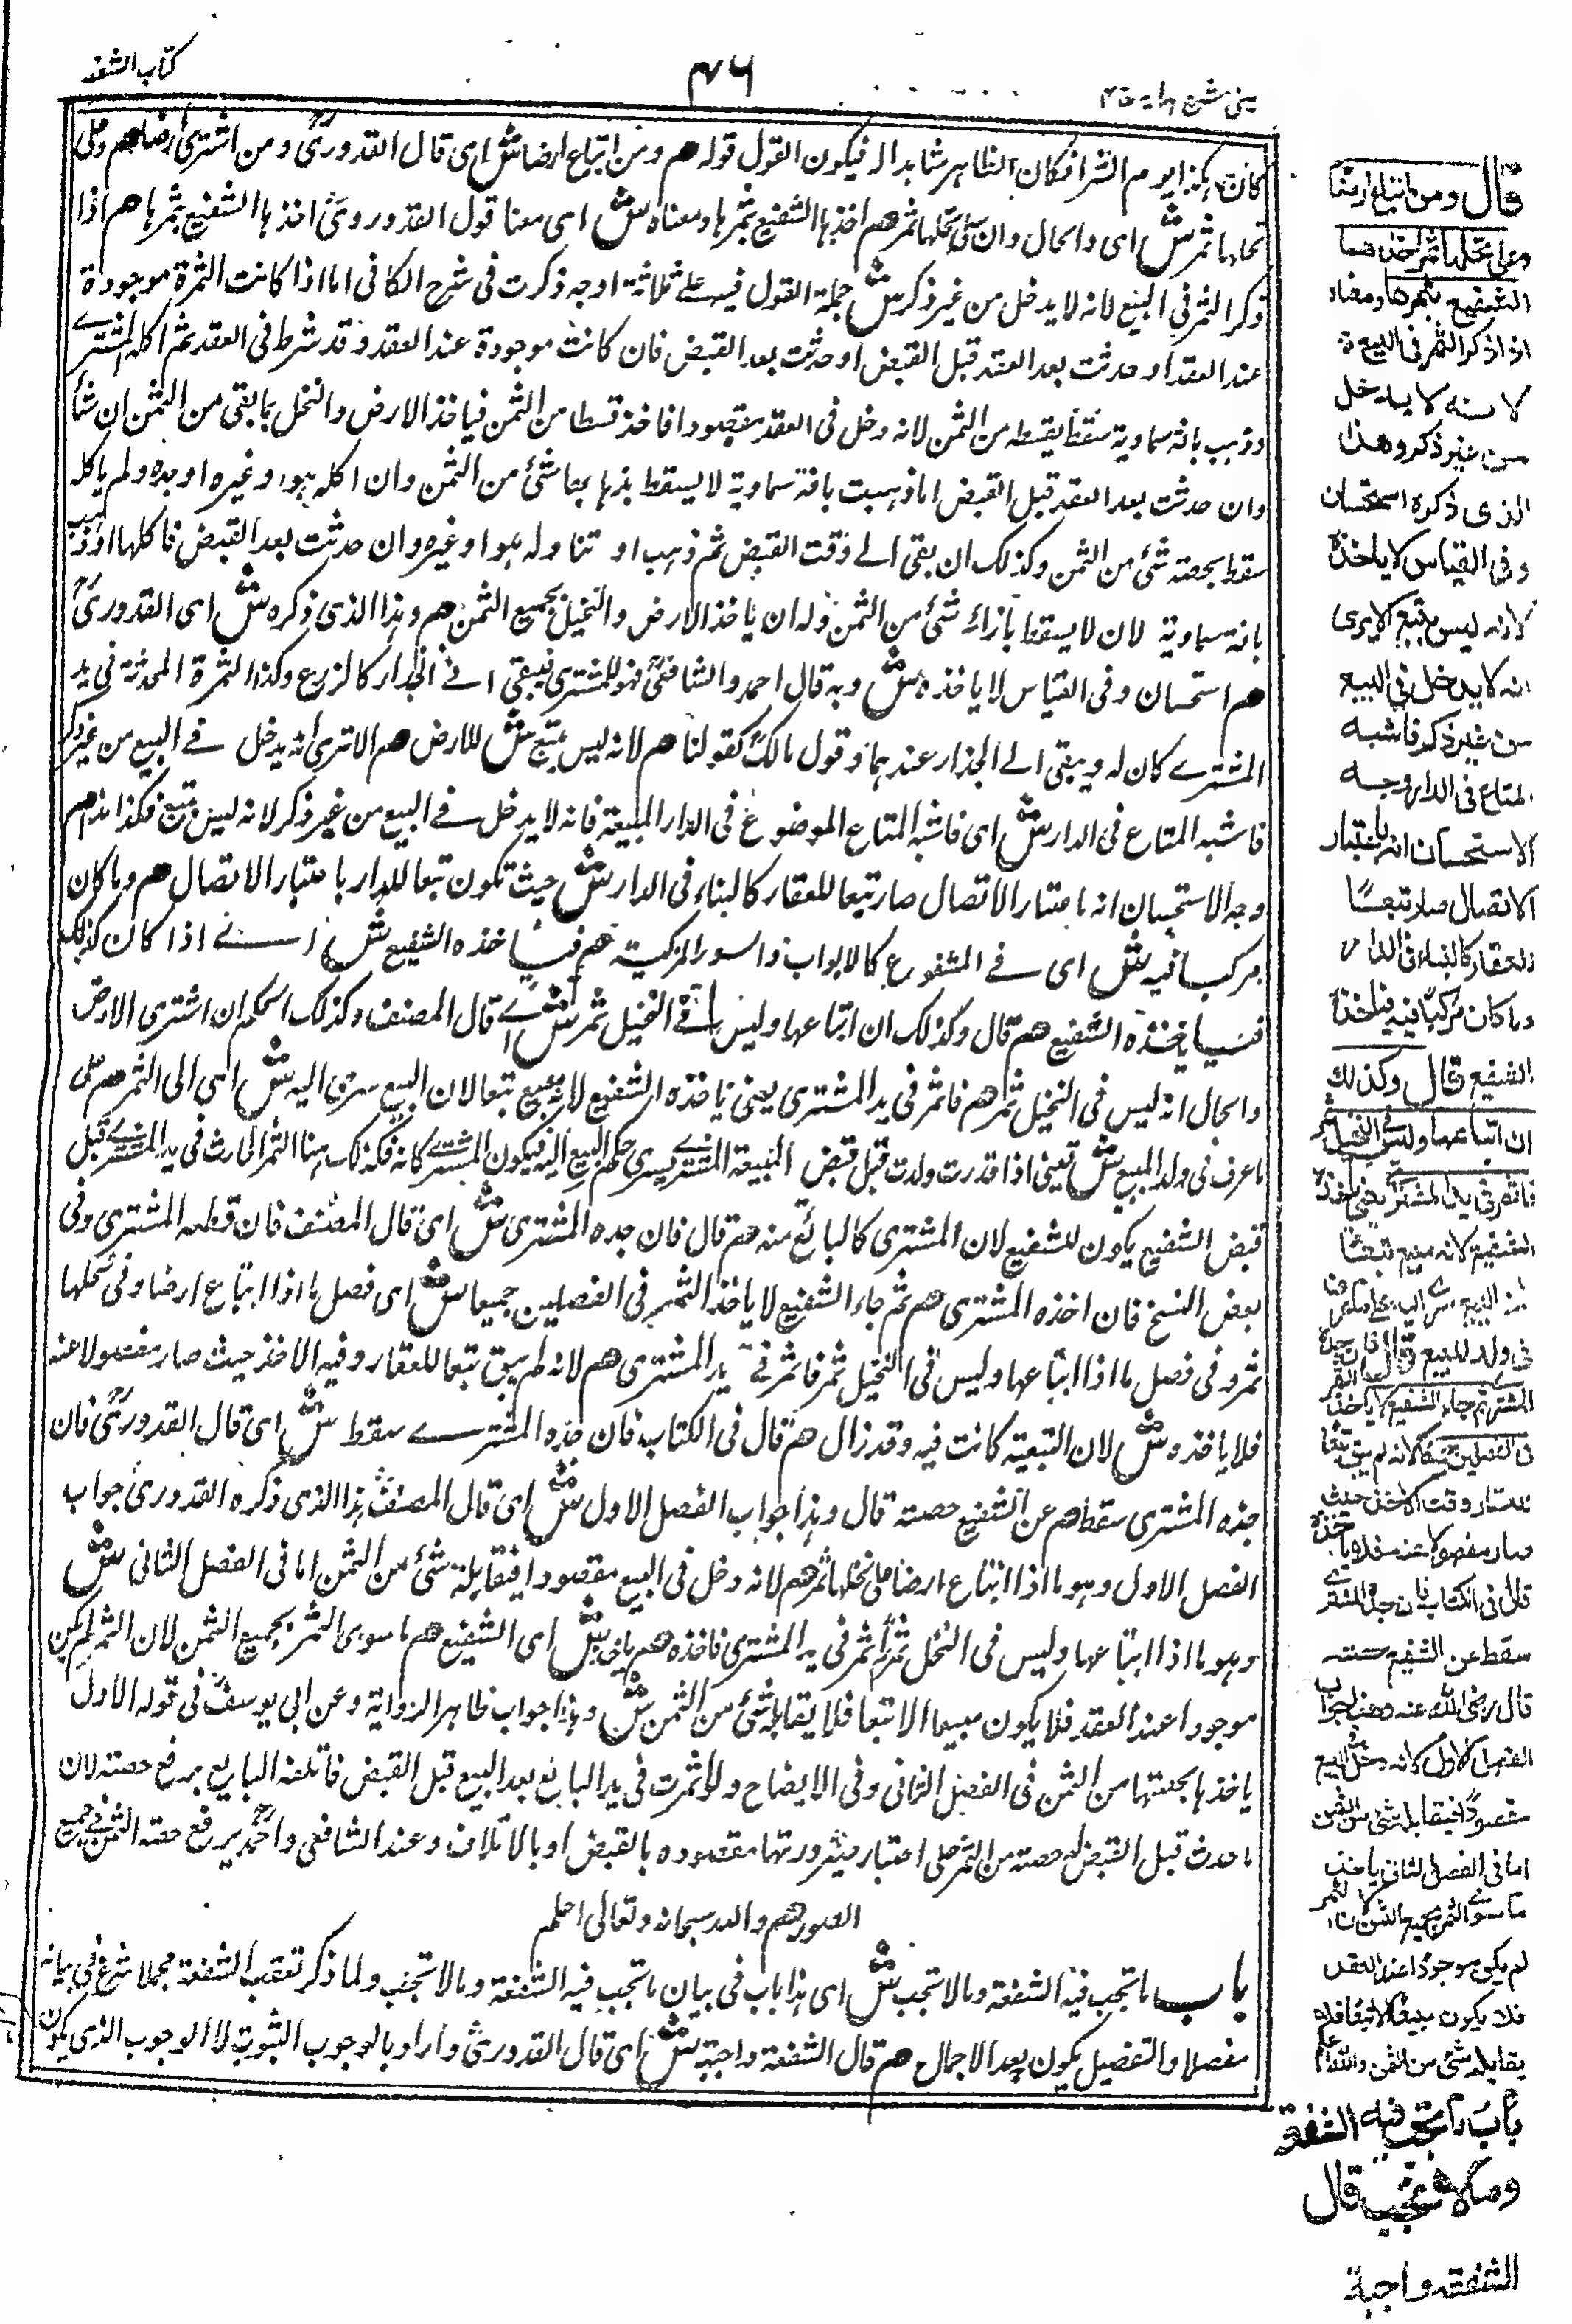 كتاب الشفعة
٤٦
عینی شرح هدایة ج ٤
كانت هكذا يوم الشرا فكان الظاهر شاهدا له فيكون القول قوله هم ومن ابتاع ارضا ش اى قال القدورىؒ ومن اشترى ارضا هم وعلى
نخلها ثمر ش اى والحال وان على نخلها ثمر هم اخذها الشفيع بثمرها ومعناه ش اى معنا قول القدورىؒ اخذها الشفيع بثمرها هم اذا
ذكر الثمر فى البيع لانه لا يدخل من غير ذكر ش جملة القول فيه علے ثلاثة اوجه ذكرت فى شرح الكافى اما اذا كانت الثمرة موجودة
عند العقد او حدثت بعد العقد قبل القبض او حدثت بعد القبض فان كانت موجودة عند العقد وقد شرط فى العقد ثم اكله المشترے
وذهب بافة سماوية سقط بقسطه من الثمن لانه دخل فى العقد مقصودا فاخذ قسطا من الثمن فياخذ الارض والنخل بما بقى من الثمن ان شأ
وان حدثت بعد العقد قبل القبض اما ذهبت بافة سماوية لا يسقط بذهابها شئ من الثمن وان اكله هو او غيره او جده ولم ياكله
سقط بحصته شئ من الثمن وكذلك ان بقى الے وقت القبض ثم ذهب او تناوله هو او غيره وان حدثت بعد القبض فاكلها او ذهب
بافة سماوية لان لا يسقط بازائه شئ من الثمن وله ان ياخذ الارض والنخيل بجميع الثمن هم وهذا الذى ذكره ش اى القدورىؒ
هم استحسان وفى القياس لا ياخذه ش وبه قال احمد والشافعىؒ فهو للمشترى فيبقى الے الجذار كالزرع وكذا الثمرة المحدثة فى يد
المشترے كان له ويبقى الے الجذار عندهما وقول مالكؒ كقولنا هم لانه ليس بتبع ش للارض هم الا ترى انه يدخل فے البيع من غير ذكر
فاشبه المتاع فى الدار ش اى فاشبه المتاع الموضوع فى الدار المبيعة فانه لا يدخل فے البيع من غير ذكر لانه ليس بتبع فكذا هذا هم
وجه الاستحسان انه باعتبار الاتصال صار تبعا للعقار كالبناء فى الدار ش حيث تكون تبعا للدار باعتبار الاتصال هم وما كان
مركبا فيه ش اى فے المشفوع كالابواب والسور المركبة هم فياخذه الشفيع ش اے اذا كان كذلك
فياخذه الشفيع هم قال وكذلك ان ابتاعها وليس فے النخيل ثمر ش اے قال المصنف وكذلك الحكم ان اشترى الارض
والحال انه ليس فى النخيل ثمر هم فاثمر فى يد المشترى يعنى ياخذه الشفيع لانه مبيع تبعا لان البيع سرى اليه ش اى الى الثمر هم على
ما عرف فى ولد المبيع ش يعنى اذا قدرت ولدت قبل قبض المبيعة المشترے يسرى حكم البيع اليه فيكون للمشترے كانه فكذلك هنا الثمر الحادث فى يد المشترے قبل
قبض الشفيع يكون للشفيع لان المشترى كالبائع منه هم قال فان جده المشترى ش اى قال المصنف فان قطعه المشترى وفى
بعض النسخ فان اخذه المشترى هم ثم جاء الشفيع لا ياخذ الثمر فى الفصلين جميعا ش اى فصل ما اذا ابتاع ارضا وفى نخلها
ثمر وفى فصل ما اذا ابتاعها وليس فى النخيل ثمر فاثمر فے يد المشترى هم لانه لم يبق تبعا للعقار وفيه الاخذ حيث صار مفصولا عنه
فلا ياخذه ش لان التبعية كانت فيه وقد زال هم قال فى الكتاب فان جذه المشترے سقط ش اى قال القدورىؒ فان
جذه المشترى سقط هم عن الشفيع حصته قال وهذا جواب الفصل الاول ش اى قال المصنفؒ هذا الذى ذكره القدورىؒ جواب
الفصل الاول وهو ما اذا ابتاع ارضا على نخلها ثمر هم لانه دخل فى البيع مقصودا فيقابله شئ من الثمن اما فى الفصل الثانى ش
وهو ما اذا ابتاعها وليس فى النخل ثمر فاثمر فى يد المشترى فاخذه هم ياخذ ش اى الشفيع هم ما سوى الثمر بجميع الثمن لان الثمر لم يكن
موجودا عند العقد فلا يكون مبيعا الا تبعا فلا يقابله شئ من الثمن ش وهذا جواب ظاهر الرواية وعن ابى يوسفؒ فى قوله الاول
ياخذها بحصتها من الثمن فى الفصل الثانى وفى الايضاح ولو اثمرت فى يد البائع بعد البيع قبل القبض فاتلفه البايع يرفع حصته لان
ما حدث قبل القبض له حصته من الثمن على اعتبار صيرورتها مقصوده بالقبض او بالاتلاف وعند الشافعى واحمدؒ يرفع حصته الثمن فے جميع
الصور هم والله سبحانه وتعالى اعلم
باب ما تجب فيه الشفعة وما لا تجب ش اى هذا باب فى بيان ما تجب فيه الشفعة وما لا تجب ولما ذكر تعقب الشفعة مجملا شرع فى بيانه
مفصلا والتفصيل يكون بعد الاجمال هم قال الشفعة واجبة ش اى قال القدورىؒ واراد بالوجوب الثبوت لا الوجوب الذى يكون
قال ومن ابتاع ارضا
وعلى نخلها ثمر اخذها
الشفيع بثمرها ومعناه
اذا ذكر الثمر فى البيع
لانه لا يدخل
من غير ذكر وهذا
الذى ذكره استحسان
وفى القياس لا ياخذه
لانه ليس بتبع الا يرى
انه لا يدخل فى البيع
من غير ذكر فاشبه
المتاع فى الدار وجه
الاستحسان انه باعتبار
الاتصال صار تبعًا
للعقار كالبناء فى الدار
وما كان مركبًا فيه فياخذه
الشفيع قال وكذلك
ان ابتاعها وليس فى النخيل ثمر
فاثمر فى يد المشترى يعنى ياخذه
الشفيع لانه مبيع تبعًا
لان البيع سرى اليه على ما عرف
فى ولد المبيع قال فان جده
المشترى ثم جاء الشفيع لا ياخذ الثمر
فى الفصلين جميعًا لانه لم يبق تبعًا
للعقار وقت الاخذ حيث
صار مفصولا عنه فلا ياخذه
قال فى الكتاب فان جذه المشترے
سقط عن الشفيع حصته
قال رضى الله عنه وهذا جواب
الفصل الاول لانه دخل فى البيع
مقصودًا فيقابله شئ من الثمن
اما فى الفصل الثانى ياخذ
ما سوى الثمر بجميع الثمن لان الثمر
لم يكن موجودًا عند العقد
فلا يكون مبيعًا الا تبعًا فلا
يقابله شئ من الثمن والله اعلم
باب ما تجب فيه الشفعة
وما لا تجب قال
الشفعة واجبة